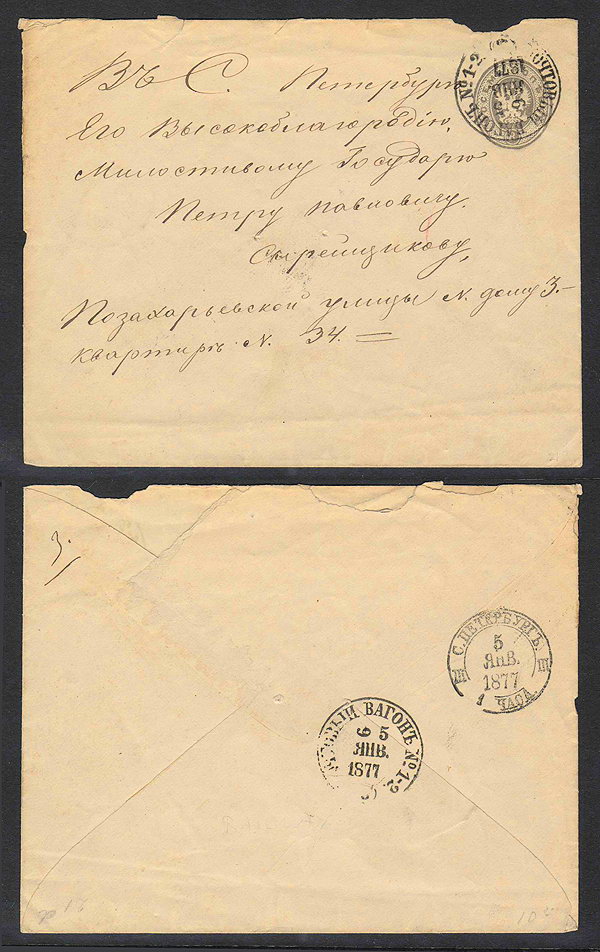 Въ С. Петербургъ
Его Высокоблагородію,
Милостивому Государю
Петру Павловичу.
Сырейщикову,
Позахарьевской улицы N. дому 3.
квартиръ N. 34.
ПОЧТОВЫЙ ВАГОНЪ №1-2
ЯНВ
1877
3.
С.ПЕТЕРБУРГЪ.
III III
5
ЯНВ.
1877
1 ЧАСА
ВАГОНЪ №1-2
6 5
ЯНВ.
1877